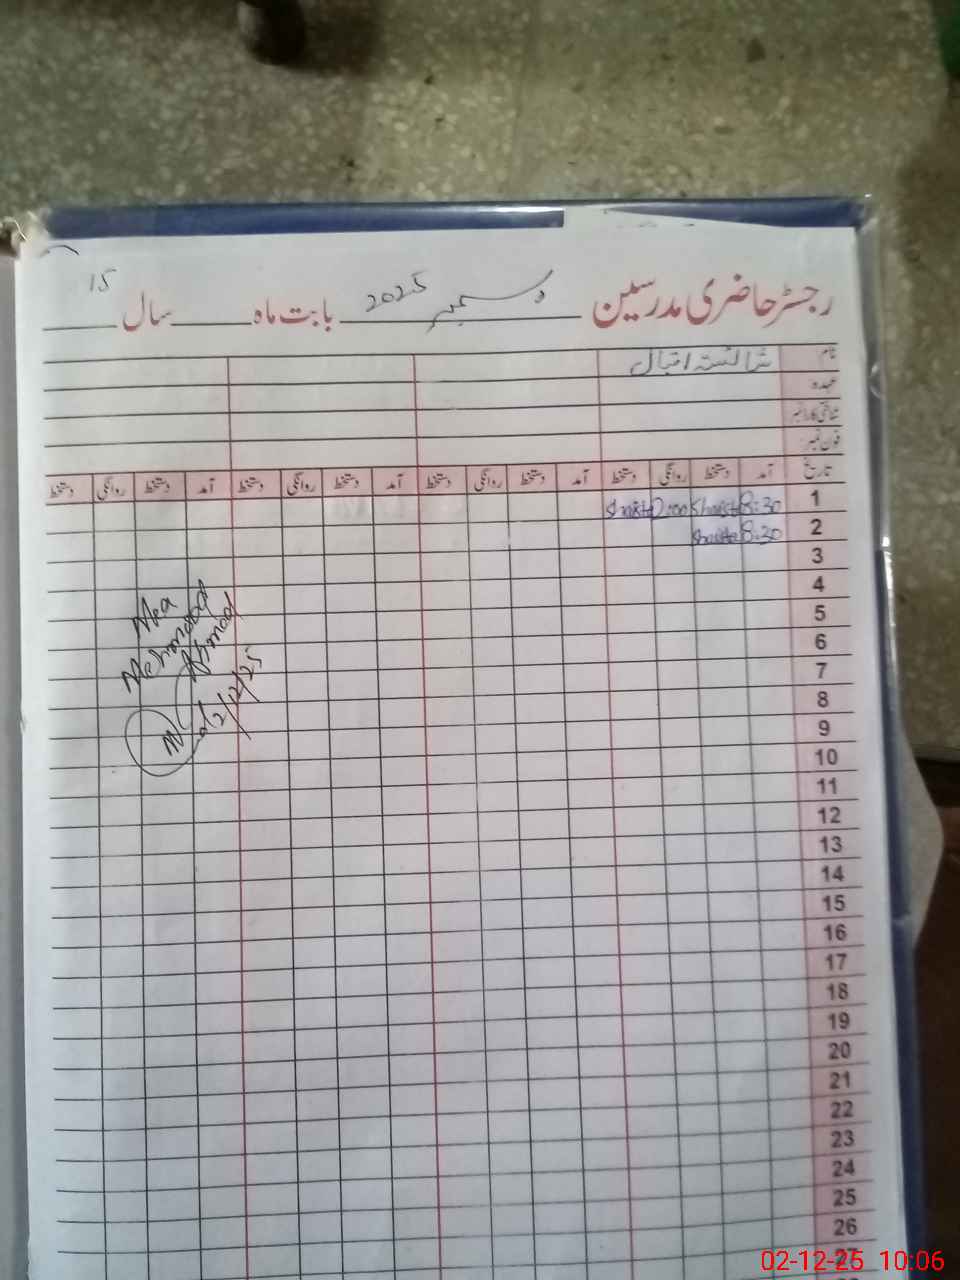 15
رجسٹر حاضری مدرسین دسمبر 2025 بابت ماہ سال
نام شائستہ اقبال
عہدہ
شناختی کارڈ نمبر
فون نمبر:
تاریخ آمد دستخط روانگی دستخط آمد دستخط روانگی دستخط آمد دستخط روانگی دستخط آمد دستخط روانگی دستخط
1 8:30 Shaista 2:00 Shaista
2 8:30 Shaista
3
4
5
6
7
8
9
10
11
12
13
14
15
16
17
18
19
20
21
22
23
24
25
26
27
Mea
Mehmood
Ahmad
2/12/25
02-12-25 10:06